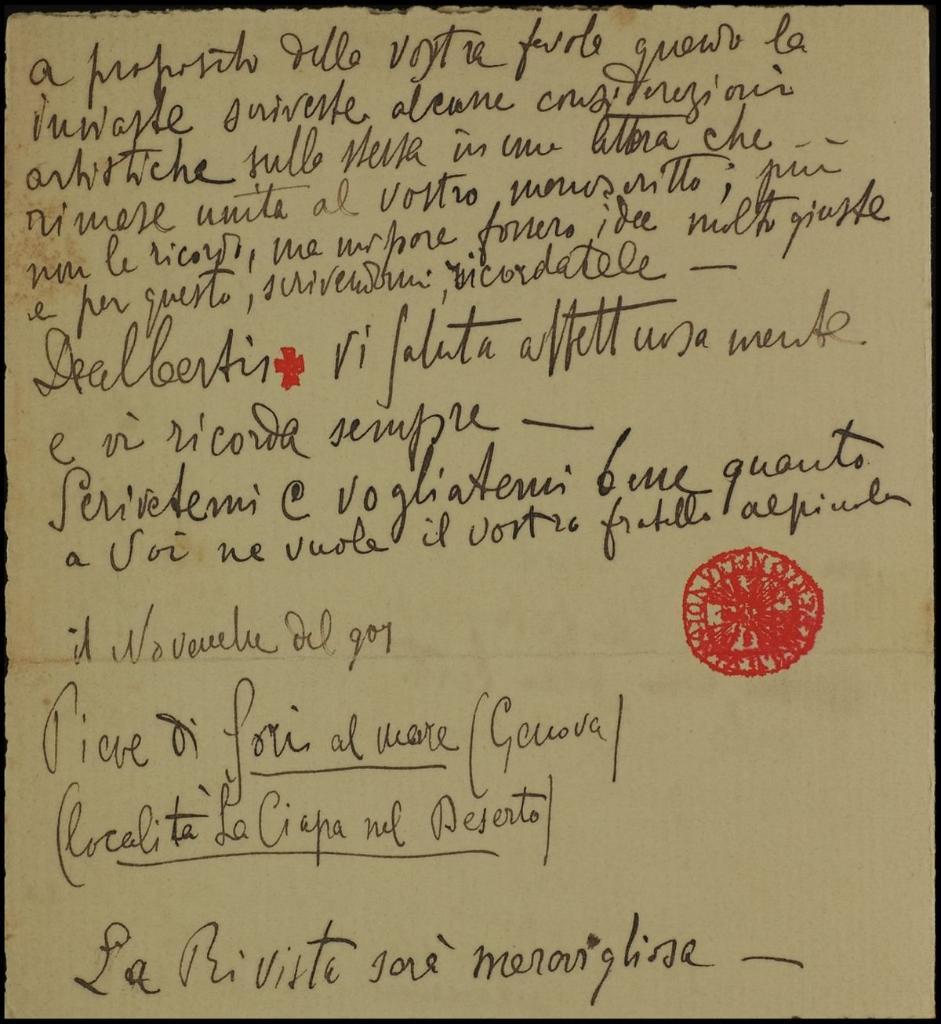 a proposito della vostra favola quando la
inviaste scriveste alcune considerazioni
artistiche sulla stessa in una lettera che –
rimase unita al vostro manoscritto; più
non le ricordo, ma mi pare fossero idee molto giuste
e per questo, scrivendomi, ricordatele —
Dealbertis vi saluta affettuosamente
e vi ricorda sempre —
Scrivetemi e vogliatemi bene quanto
a Voi ne vuole il vostro fratello
il Novembre del 907
Pieve di Sori al mare (Genova)
(località La Ciapa nel Deserto)
La Rivista sarà meravigliosa —